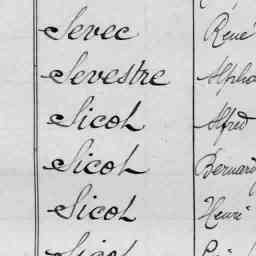 Sevec René
Sevestre Alpho
Sicot Alfred
Sicot Bernard
Sicot Henri
Sicot